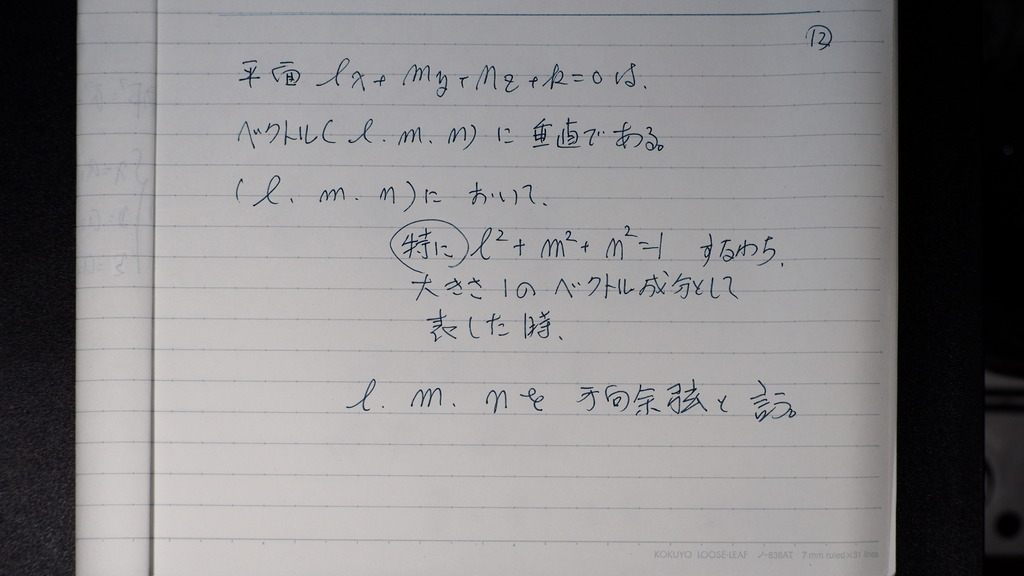 ⑫
平面 lx + my + nz + k = 0 は、
ベクトル( l. m. n) に 垂直である。
( l. m. n) に おいて、
特に l² + m² + n² = 1 すなわち、
大きさ 1 の ベクトル成分として
表した時、
l. m. n を 方向余弦と 言う。
KOKUYO LOOSE-LEAF ノ-836AT 7 mm ruled x 31 lines